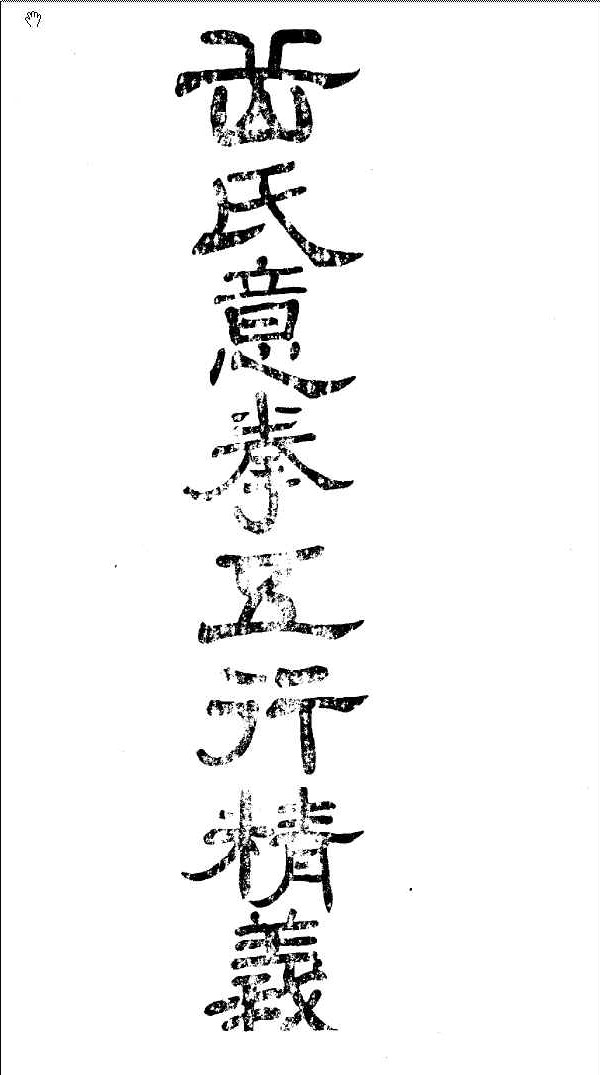 岳氏意拳五行精義